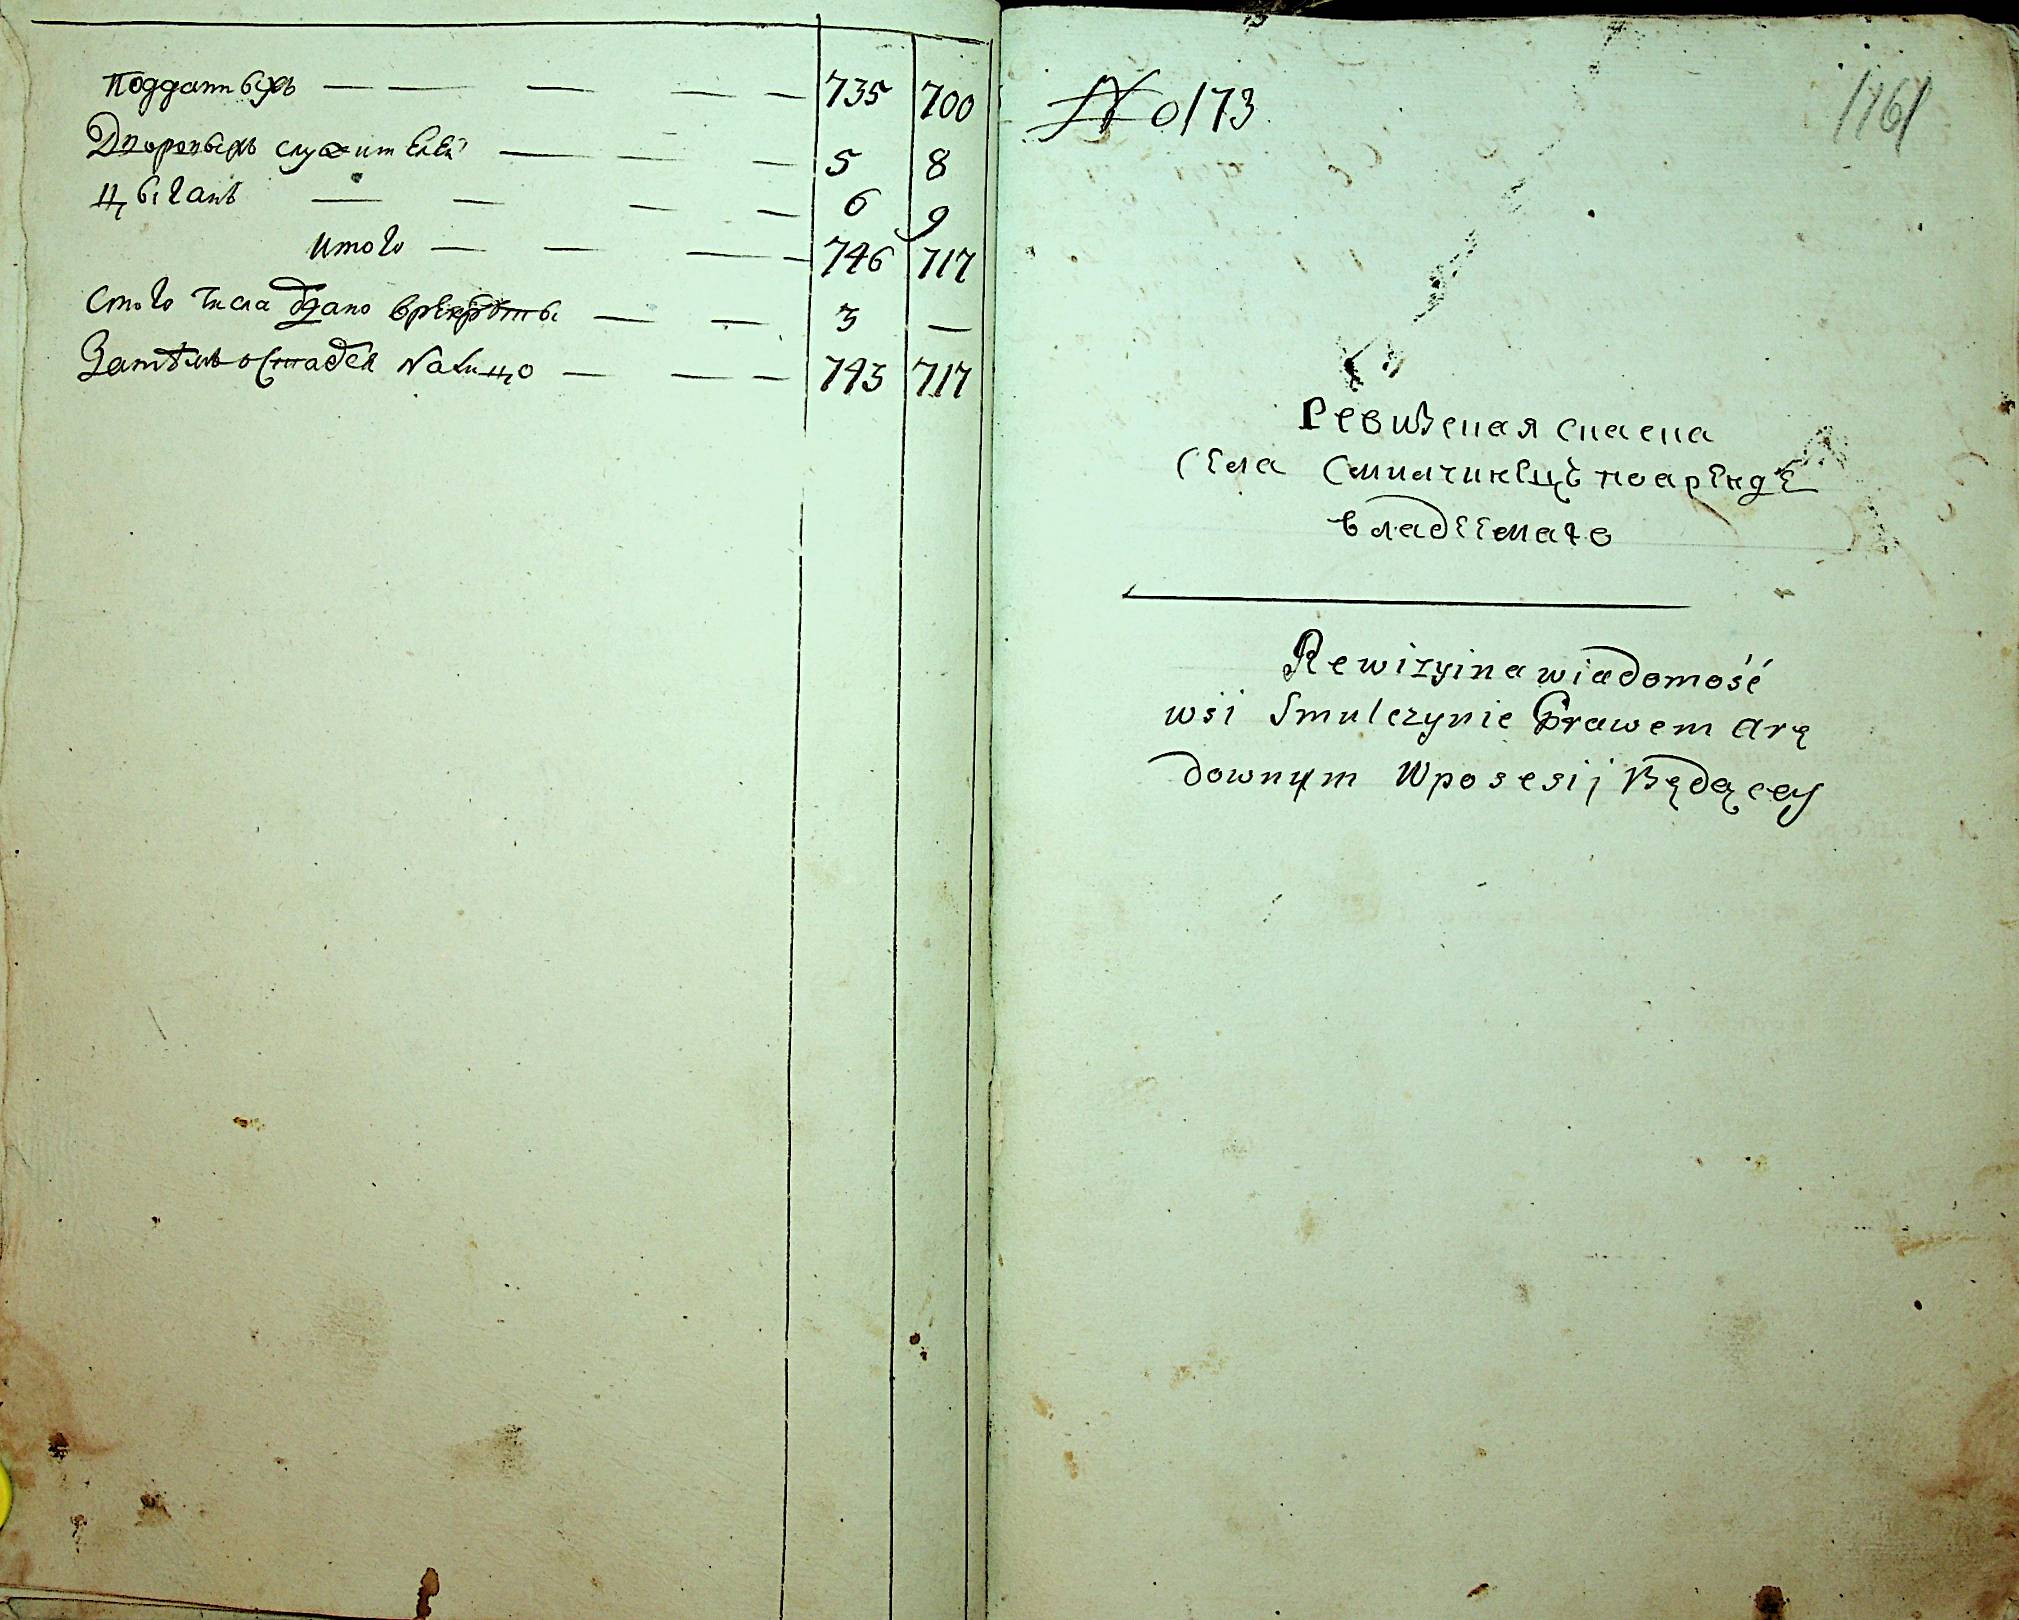 Подданныхъ — — — — — 735 700
Дворовыхъ служителей — — — — 5 8
Цыганъ — — — — 6 9
Итого — — — — 746 717
Стого числа здано врекруты — — 3 —
Затѣмъ осталося налицо — — — 743 717
№ 173
1161
Ревизская
села Смилчинецъ поаренде
владеемаго
Rewizyina wiadomość
wsi Smulczynie Prawem Arę
downym Wposesij Będącey